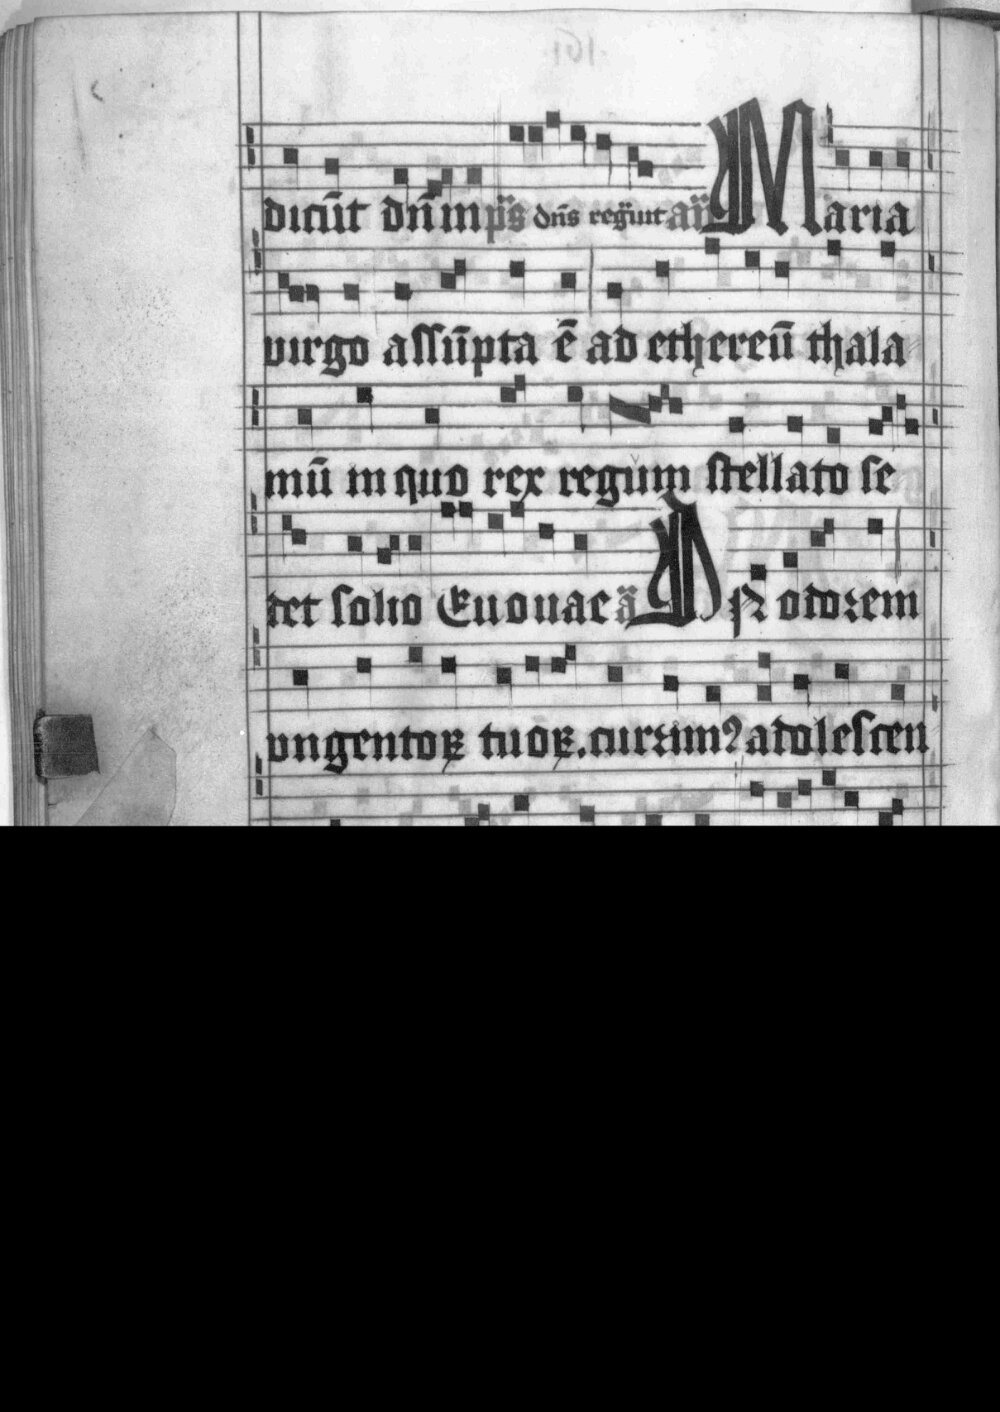 dicūt dn̄m ps̄ dn̄s regīut an̄ Maria
virgo assūpta ē ad ethereū thala
mū in quo rex regum stellato se
det solio Euouae a᷎ In odorem
vngentoꝝ tuoꝝ. currim⁹ adolescen